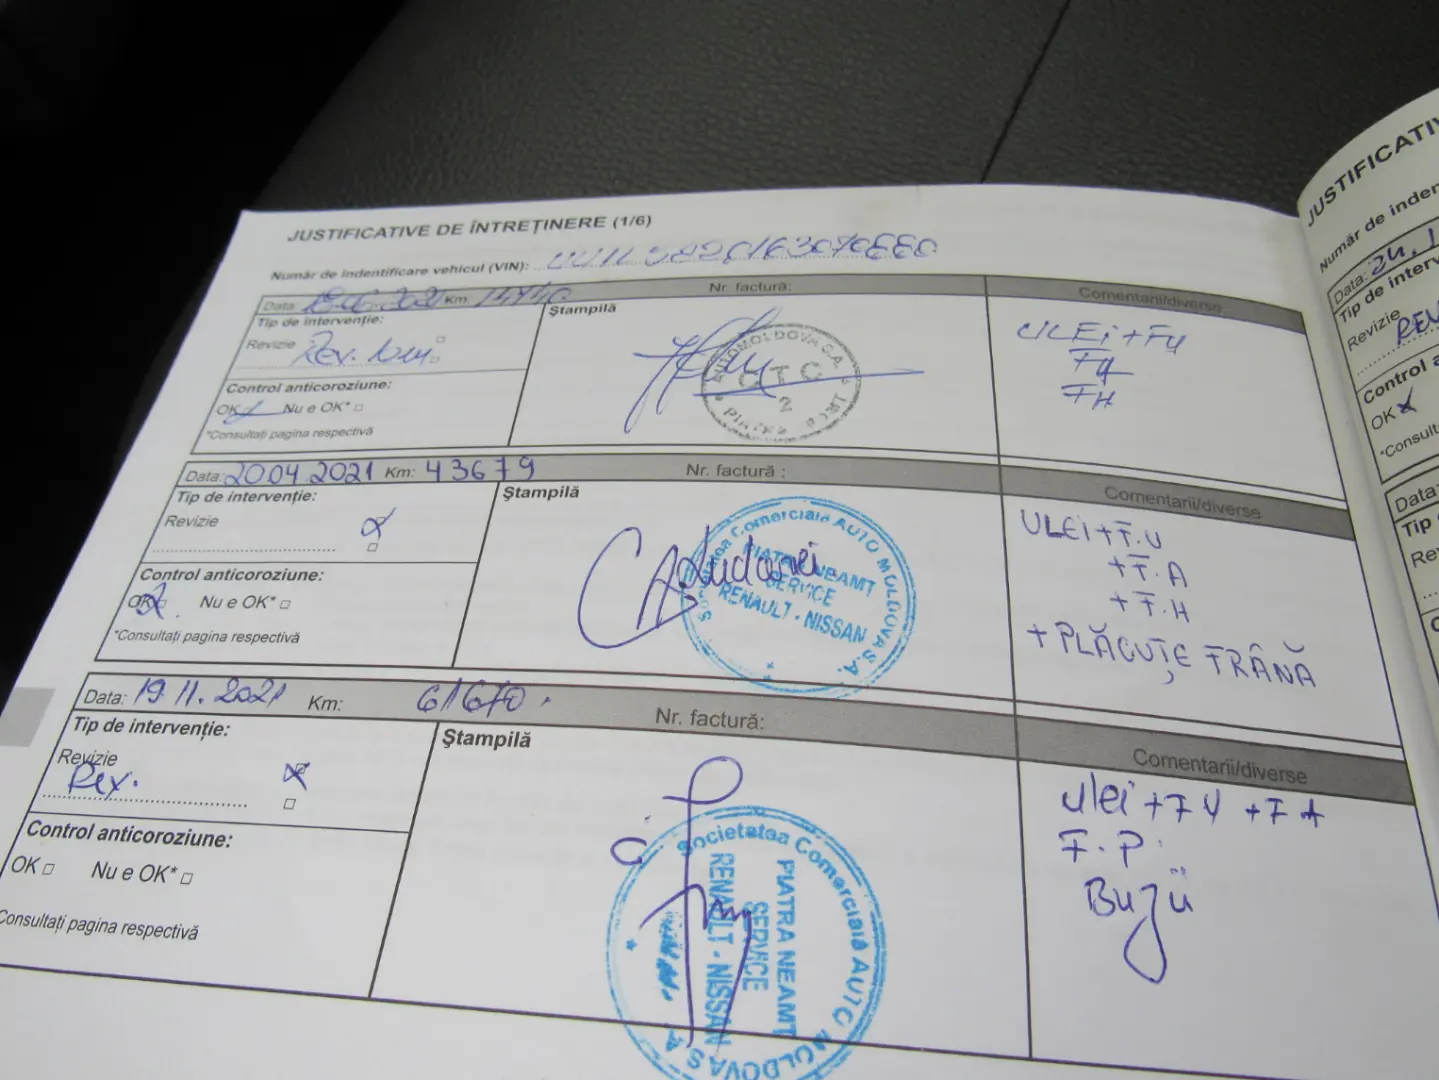 JUSTIFICATIVE DE ÎNTREȚINERE (1/6)
Număr de indentificare vehicul (VIN):
Data: Km: Nr. factură: Comentarii/diverse
Tip de intervenție:
Revizie
Rev.
Control anticoroziune:
OK Nu e OK*
*Consultați pagina respectivă
Ștampilă
AUTOMOLDOVA S.A.
CTC
2
PIATRA
ULEi + FU
FH
Data: 20.04.2021 Km: 43679 Nr. factură : Comentarii/diverse
Tip de intervenție:
Revizie
Control anticoroziune:
OK Nu e OK*
*Consultați pagina respectivă
Ștampilă
Societatea Comerciala AUTO MOLDOVA S.A.
PIATRA NEAMT
SERVICE
RENAULT - NISSAN
ULEI + F.U
+ F.A
+ F.H
+ PLĂCUȚE FRÂNĂ
Data: 19.11.2021 Km: 61670. Nr. factură: Comentarii/diverse
Tip de intervenție:
Revizie
Control anticoroziune:
OK Nu e OK*
Consultați pagina respectivă
Ștampilă
Societatea Comerciala AUTO MOLDOVA S.A.
PIATRA NEAMT
SERVICE
RENAULT - NISSAN
ulei + FU + FA
F.P.
Bujii
JUSTIFICATIV
Număr de inden
Data: 24.1
Tip de interv
Revizie
REV
Control a
OK
*Consult
Data
Tip
Re